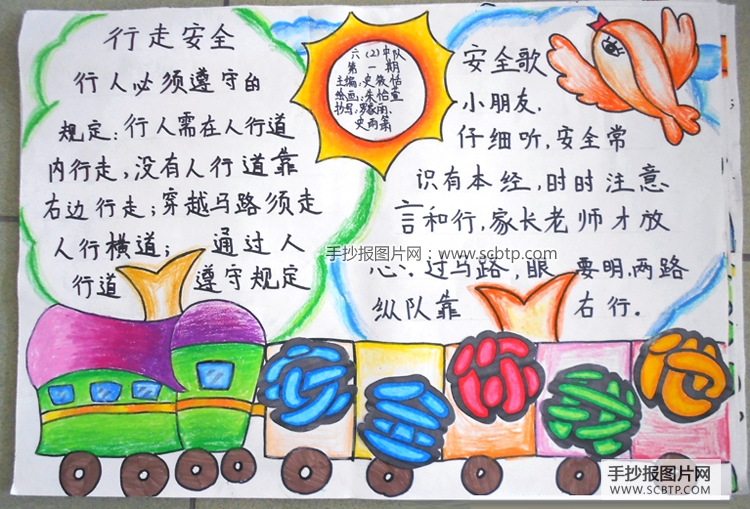 行走安全
行人必须遵守的
规定:行人需在人行道
内行走,没有人行道靠
右边行走;穿越马路须走
人行横道; 通过人
行道 遵守规定
六(2)中队
第一期
主编:史筱怡
绘画:朱怡萱
书写:罗家雨、
史雨菡
安全歌
小朋友,
仔细听,安全常
识有本经,时时注意
言和行,家长老师才放
心;过马路,眼要明,两路
纵队靠 右行.
手抄报图片网:www.scbtp.com
安全你我他
手抄报图片网
WWW.SCBTP.COM